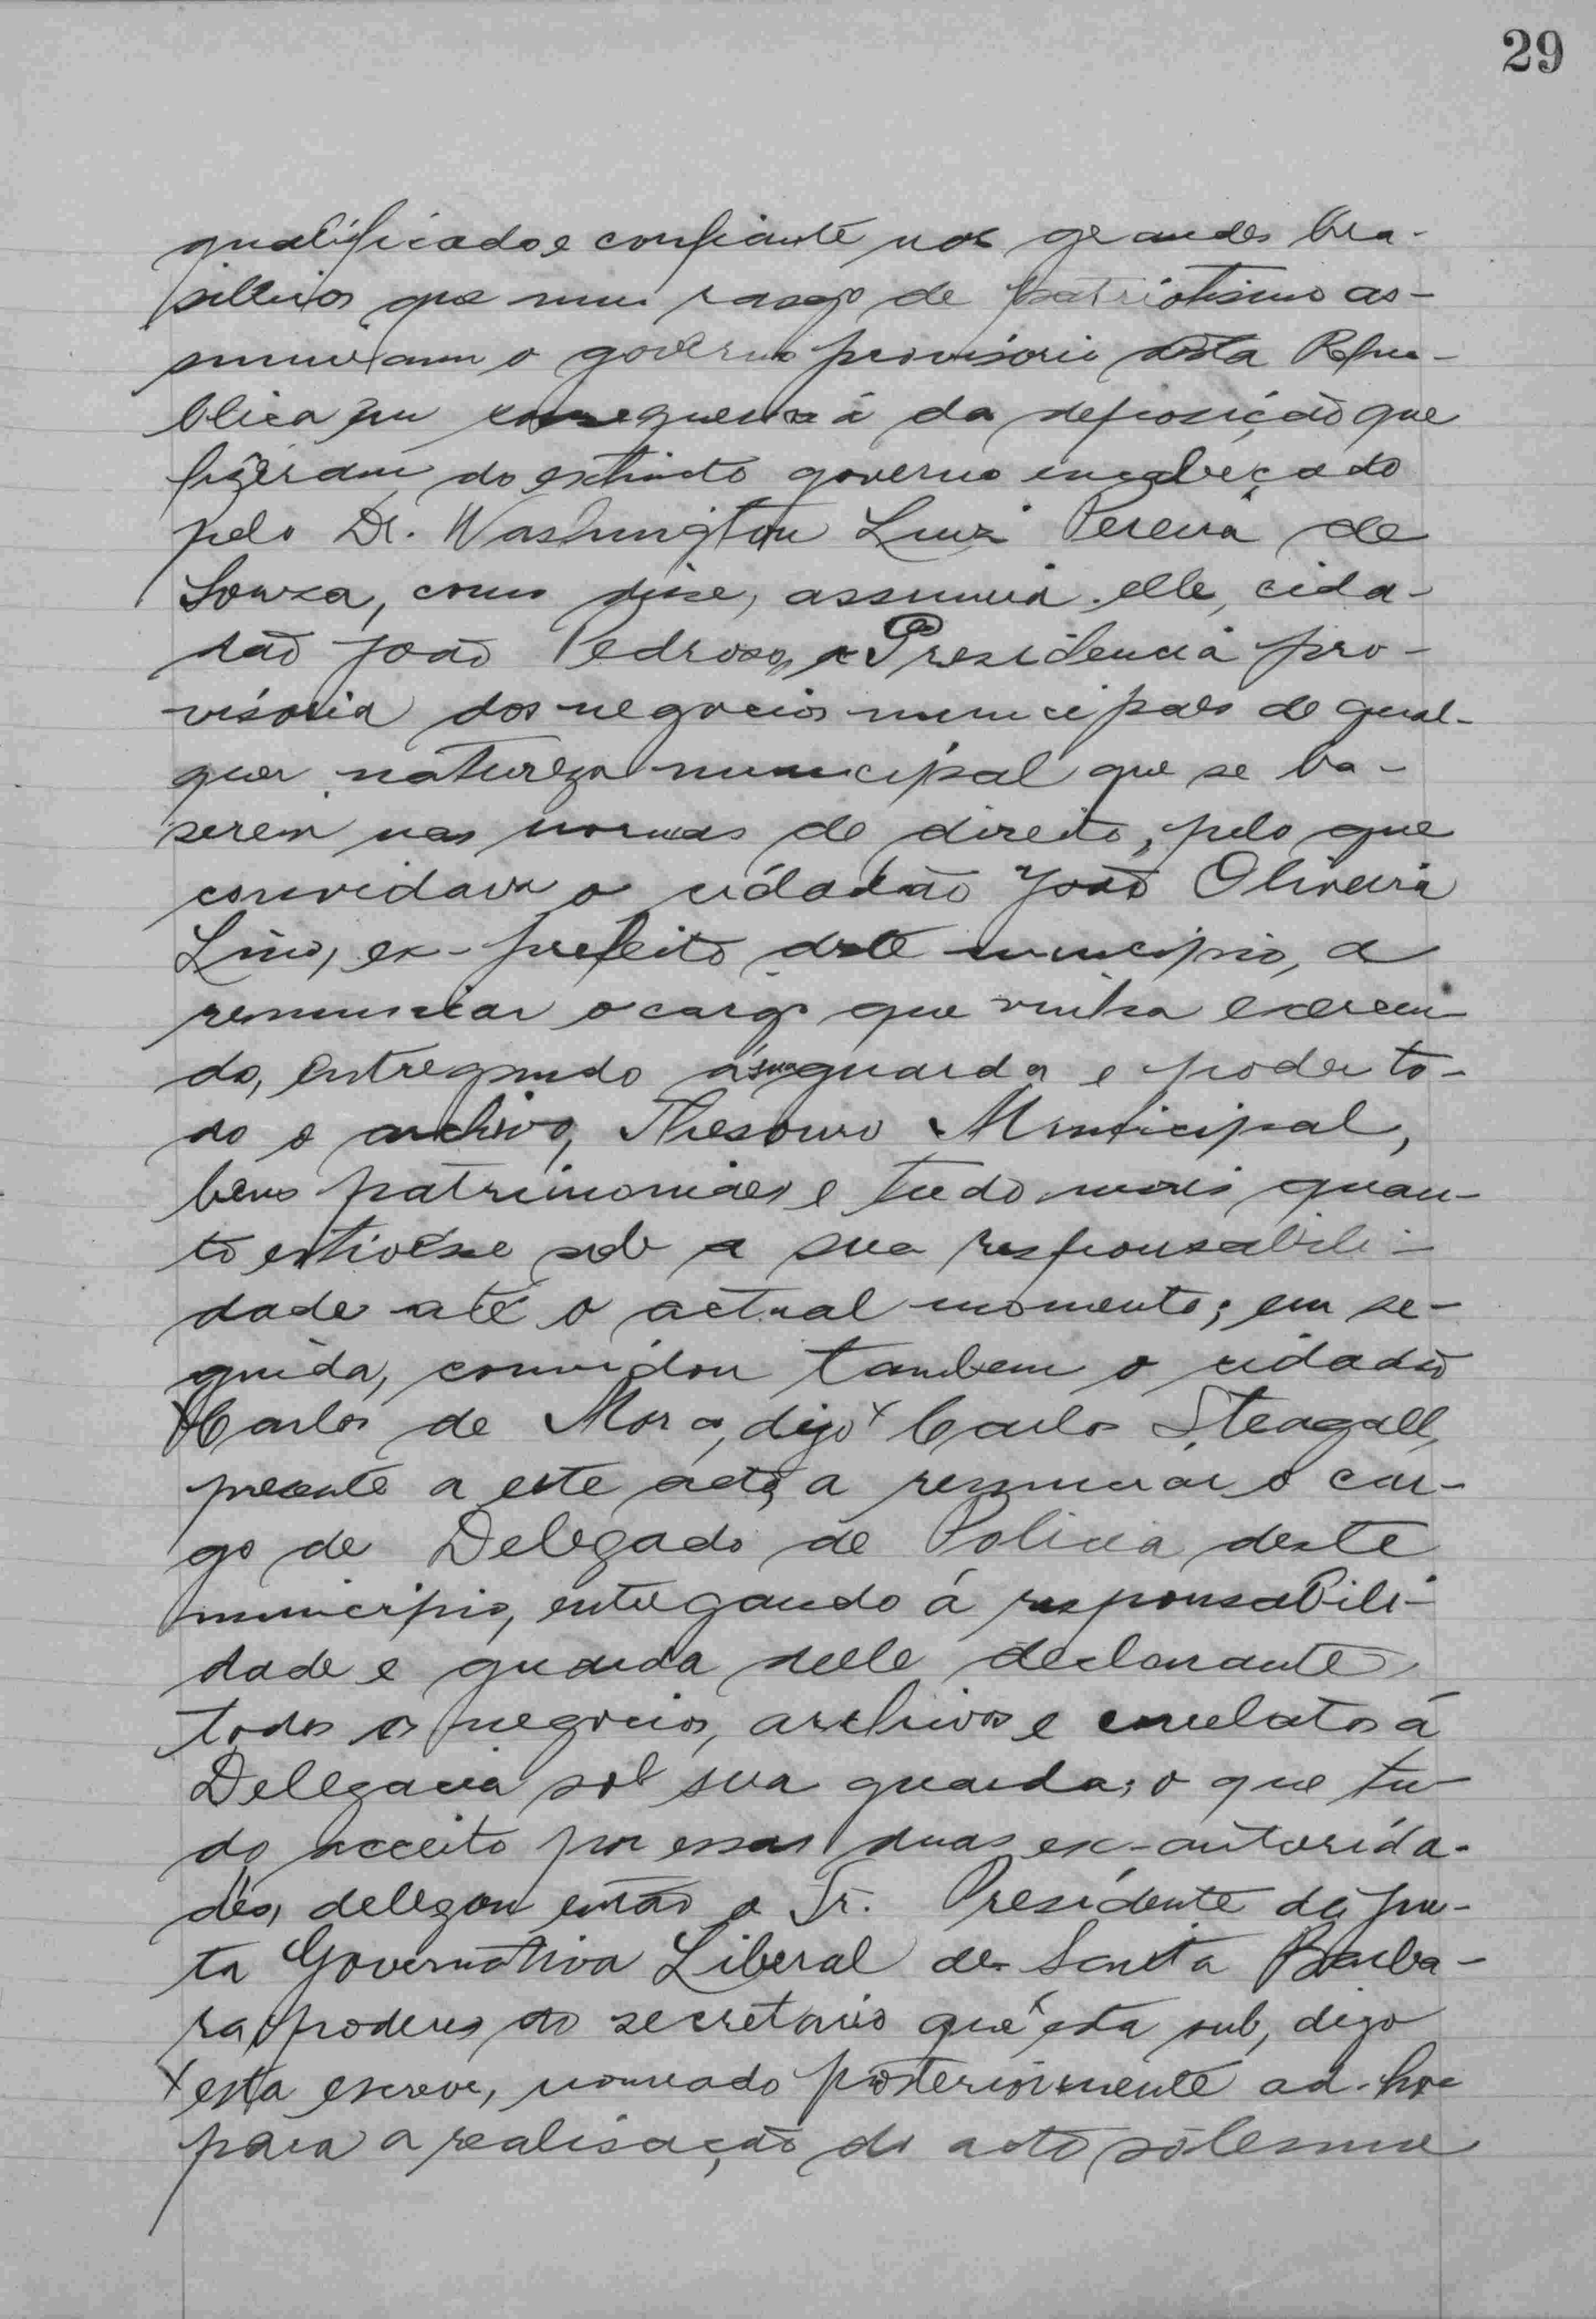 29
qualificado e confiante nos grandes bra-
sileiros que num rasgo de patriotismo as-
sumiram o governo provisorio desta Repu-
blica em consequencia da deposição que
fizeram do extincto governo encabeçado
pelo Dr. Washington Luiz Pereira de
Souza, como disse, assumia elle, cida-
dão João Pedroso, a Presidencia pro-
visoria dos negocios municipaes de qual-
quer natureza municipal que se ba-
serem nas normas de direito, pelo que
convidava o cidadão João Oliveira
Lino, ex-prefeito deste municipio, a
renunciar o cargo que vinha exercen-
do, entregando á sua guarda e poder to-
do o archivo, Thesouro Municipal,
bens patrimoniaes e tudo mais quan-
to estivésse sob a sua responsabili-
dade até o actual momento; em se-
guida, convidou tambem o cidadão
Carlos de Mora, digo Carlos Steagall,
presente a este acto, a renunciar o car-
go de Delegado de Policia deste
municipio, entregando á responsabili-
dade e guarda delle declarante
todos os negocios, archivos e correlatos á
Delegacia sob sua guarda; o que tu-
do acceito por essas duas ex-autorida-
des, delegou então o Sr. Presidente da Jun-
ta Governativa Liberal de Santa Barba-
ra poderes ao secretario que esta sub, digo
esta escreve, nomeado posteriormente ad-hoc
para a realisação do acto solemne